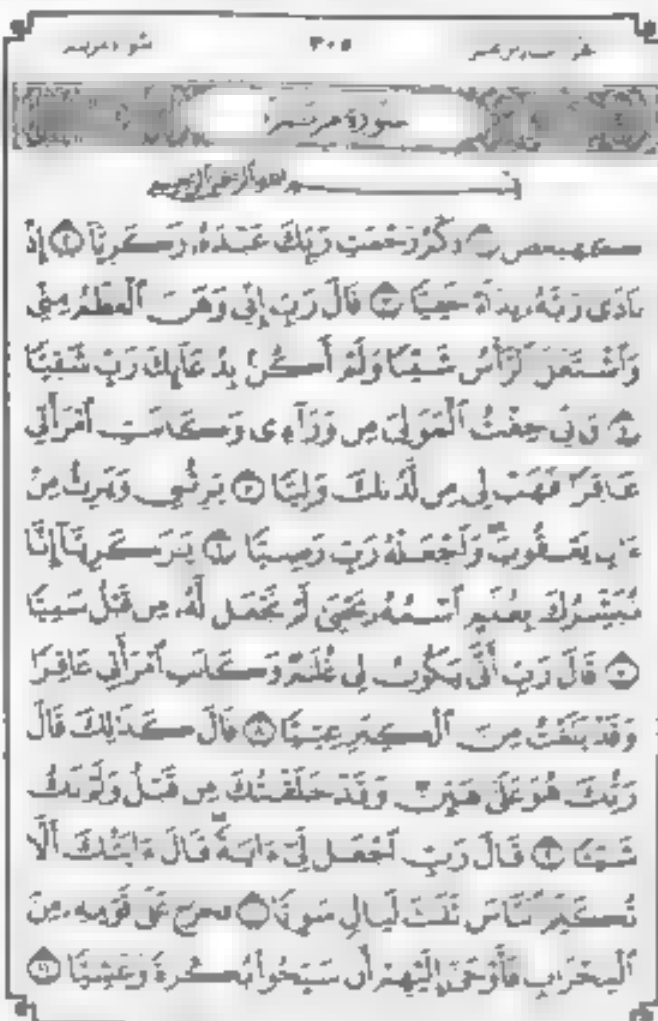 الجزء السادس عشر ٣٠٥ سورة مريم
سُورَةُ مَرْيَمَ
بِسْمِ اللَّهِ الرَّحْمَٰنِ الرَّحِيمِ
كٓهيعٓصٓ ١ ذِكْرُ رَحْمَتِ رَبِّكَ عَبْدَهُۥ زَكَرِيَّآ ٢ إِذْ
نَادَىٰ رَبَّهُۥ نِدَآءً خَفِيًّا ٣ قَالَ رَبِّ إِنِّى وَهَنَ ٱلْعَظْمُ مِنِّى
وَٱشْتَعَلَ ٱلرَّأْسُ شَيْبًا وَلَمْ أَكُنۢ بِدُعَآئِكَ رَبِّ شَقِيًّا
٤ وَإِنِّى خِفْتُ ٱلْمَوَٰلِىَ مِن وَرَآءِى وَكَانَتِ ٱمْرَأَتِى
عَاقِرًا فَهَبْ لِى مِن لَّدُنكَ وَلِيًّا ٥ يَرِثُنِى وَيَرِثُ مِنْ
ءَالِ يَعْقُوبَ ۖ وَٱجْعَلْهُ رَبِّ رَضِيًّا ٦ يَٰزَكَرِيَّآ إِنَّا
نُبَشِّرُكَ بِغُلَٰمٍ ٱسْمُهُۥ يَحْيَىٰ لَمْ نَجْعَل لَّهُۥ مِن قَبْلُ سَمِيًّا
٧ قَالَ رَبِّ أَنَّىٰ يَكُونُ لِى غُلَٰمٌ وَكَانَتِ ٱمْرَأَتِى عَاقِرًا
وَقَدْ بَلَغْتُ مِنَ ٱلْكِبَرِ عِتِيًّا ٨ قَالَ كَذَٰلِكَ قَالَ
رَبُّكَ هُوَ عَلَىَّ هَيِّنٌ وَقَدْ خَلَقْتُكَ مِن قَبْلُ وَلَمْ تَكُ
شَيْـًٔا ٩ قَالَ رَبِّ ٱجْعَل لِّىٓ ءَايَةً ۚ قَالَ ءَايَتُكَ أَلَّا
تُكَلِّمَ ٱلنَّاسَ ثَلَٰثَ لَيَالٍ سَوِيًّا ١٠ فَخَرَجَ عَلَىٰ قَوْمِهِۦ مِنَ
ٱلْمِحْرَابِ فَأَوْحَىٰٓ إِلَيْهِمْ أَن سَبِّحُوا۟ بُكْرَةً وَعَشِيًّا ١١